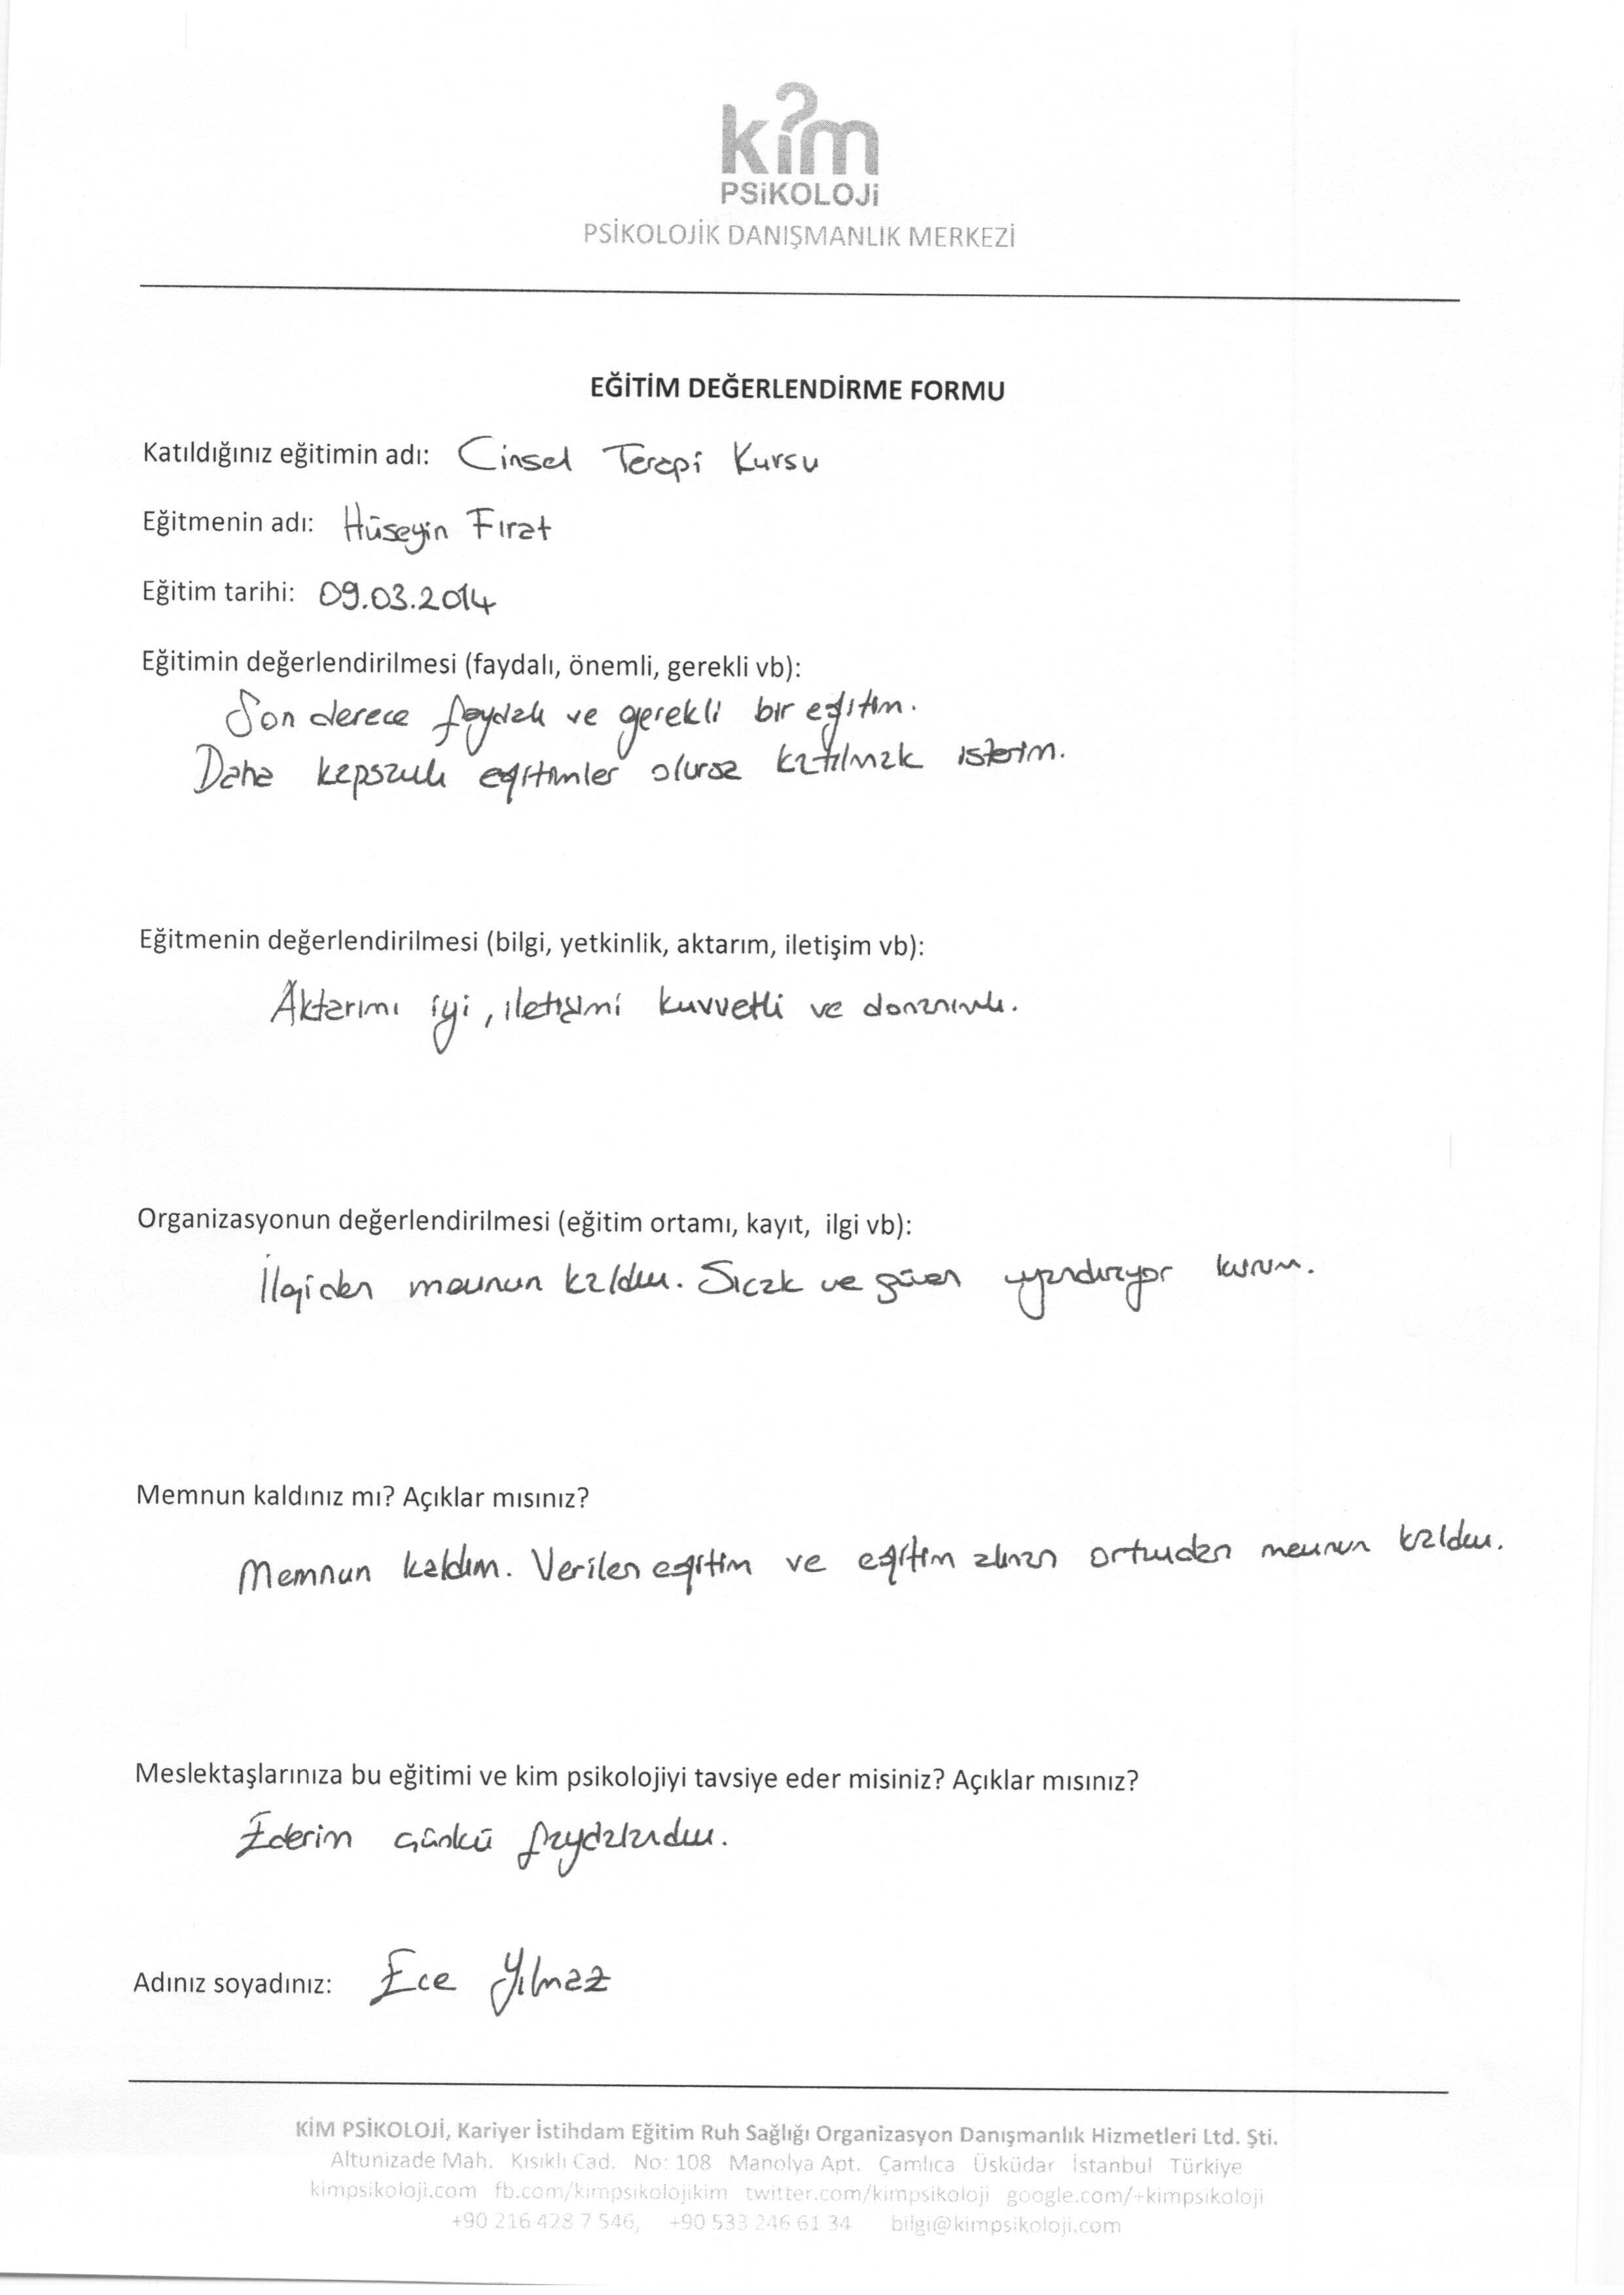 kim
PSİKOLOJİ
PSİKOLOJİK DANIŞMANLIK MERKEZİ
EĞİTİM DEĞERLENDİRME FORMU
Katıldığınız eğitimin adı: Cinsel Terapi Kursu
Eğitmenin adı: Hüseyin Fırat
Eğitim tarihi: 09.03.2014
Eğitimin değerlendirilmesi (faydalı, önemli, gerekli vb):
Son derece faydalı ve gerekli bir eğitim.
Daha kapsamlı eğitimler olursa katılmak isterim.
Eğitmenin değerlendirilmesi (bilgi, yetkinlik, aktarım, iletişim vb):
Aktarımı iyi, iletişimi kuvvetli ve donanımlı.
Organizasyonun değerlendirilmesi (eğitim ortamı, kayıt, ilgi vb):
İlgiden memnun kaldım. Sıcak ve güven uyandırıyor kurum.
Memnun kaldınız mı? Açıklar mısınız?
Memnun kaldım. Verilen eğitim ve eğitim alınan ortamdan memnun kaldım.
Meslektaşlarınıza bu eğitimi ve kim psikolojiyi tavsiye eder misiniz? Açıklar mısınız?
Ederim çünkü faydalandım.
Adınız soyadınız: Ece Yılmaz
KİM PSİKOLOJİ, Kariyer İstihdam Eğitim Ruh Sağlığı Organizasyon Danışmanlık Hizmetleri Ltd. Şti.
Altunizade Mah. Kısıklı Cad. No: 108 Manolya Apt. Çamlıca Üsküdar İstanbul Türkiye
kimpsikoloji.com fb.com/kimpsikolojikim twitter.com/kimpsikoloji google.com/+kimpsikoloji
+90 216 428 7 546, +90 533 246 61 34 bilgi@kimpsikoloji.com